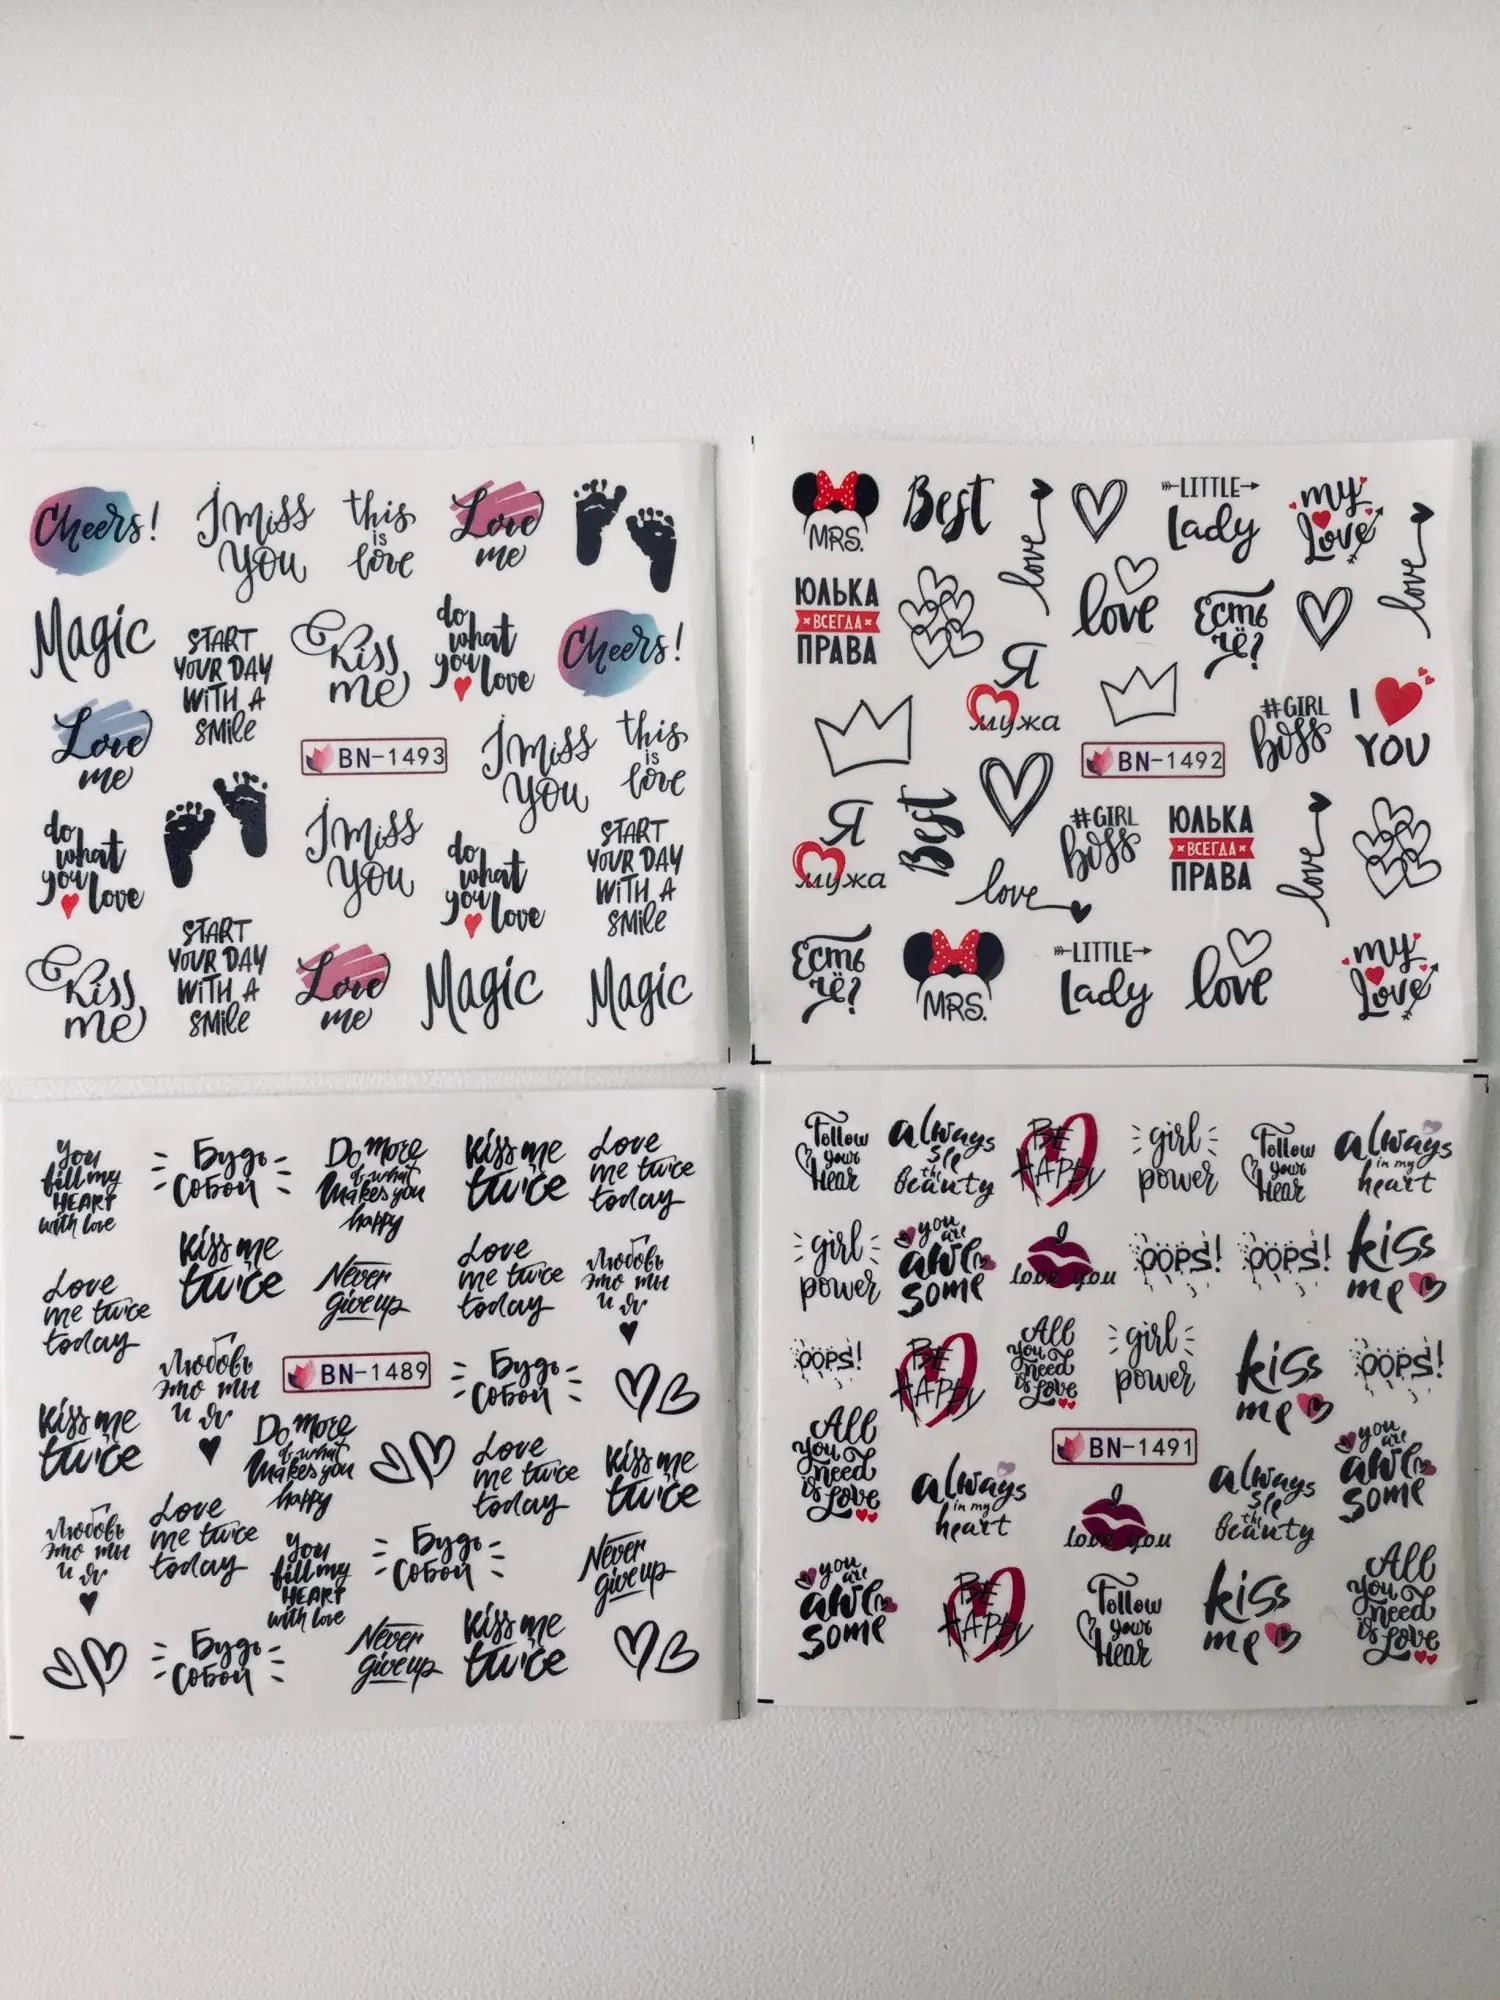 Cheers!
I Miss
You
this
is
love
Love
me
Magic
START
YOUR DAY
WITH A
SMILE
Kiss
me
do
what
you
love
Cheers!
Love
me
BN-1493
I Miss
You
this
is
love
do
what
you
love
I Miss
You
do
what
you
love
START
YOUR DAY
WITH A
SMILE
Kiss
me
START
YOUR DAY
WITH A
SMILE
Love
me
Magic
Magic
MRS.
Best
love
LITTLE
Lady
my
Love
love
ЮЛЬКА
ВСЕГДА
ПРАВА
love
Есть
чё?
Я
мужа
#GIRL
Boss
I
YOU
BN-1492
Я
мужа
Best
love
#GIRL
Boss
ЮЛЬКА
ВСЕГДА
ПРАВА
love
Есть
чё?
MRS.
LITTLE
Lady
love
my
Love
you
fill my
HEART
with love
Будь
Собой
Do more
of what
makes you
happy
Kiss me
twice
Love
me twice
today
Love
me twice
today
Kiss me
twice
Never
give up
Love
me twice
today
Любовь
это ты
и я
Любовь
это ты
и я
BN-1489
Будь
Собой
Kiss me
twice
Do more
of what
makes you
happy
Love
me twice
today
Kiss me
twice
Любовь
это ты
и я
Love
me twice
today
you
fill my
HEART
with love
Будь
Собой
Never
give up
Будь
Собой
Never
give up
Kiss me
twice
Follow
your
Hear
always
see
the
beauty
BE
HAPPY
girl
power
Follow
your
Hear
always
in my
heart
girl
power
you
are
awe
some
I
love you
OOPS!
OOPS!
kiss
me
OOPS!
BE
HAPPY
All
you
need
is
Love
girl
power
kiss
me
OOPS!
All
you
need
is
Love
always
in my
heart
BN-1491
I
love you
always
see
the
beauty
you
are
awe
some
you
are
awe
some
BE
HAPPY
Follow
your
Hear
kiss
me
All
you
need
is
Love